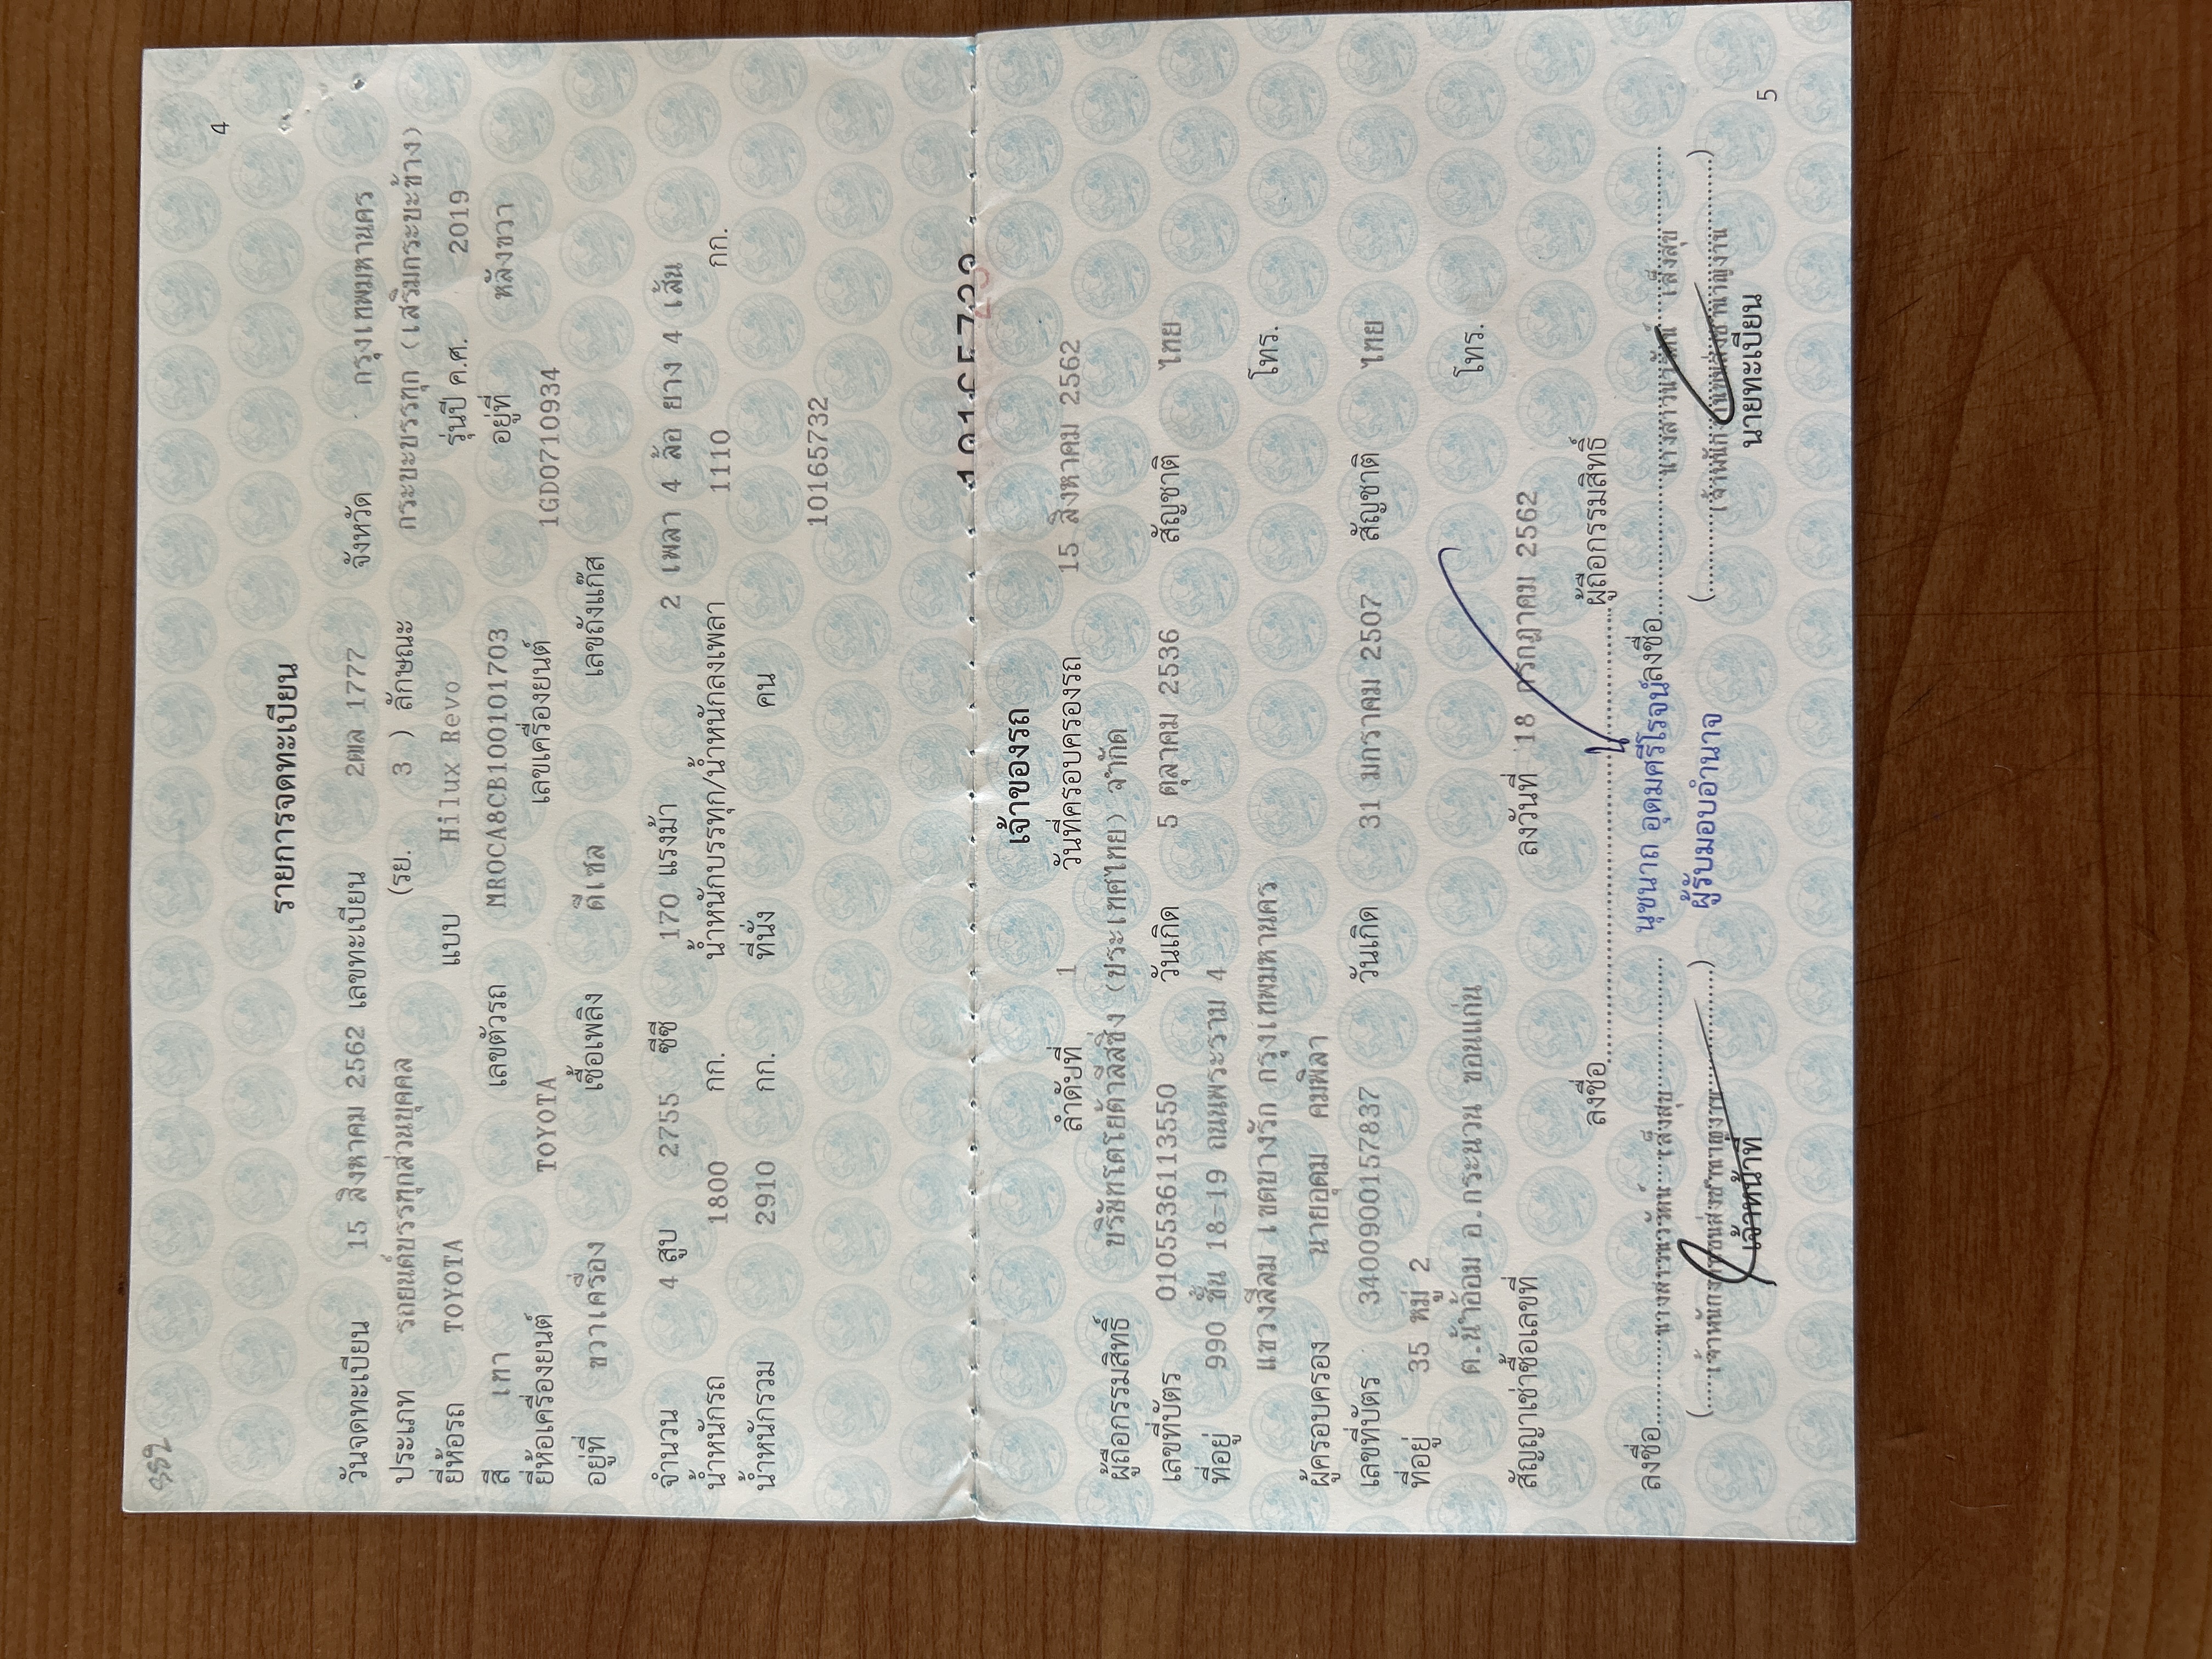 4
รายการจดทะเบียน
วันจดทะเบียน 15 สิงหาคม 2562 เลขทะเบียน 2ฒล 1777 จังหวัด กรุงเทพมหานคร
ประเภท รถยนต์บรรทุกส่วนบุคคล (รย. 3 ) ลักษณะ กระบะบรรทุก (เสริมกระบะข้าง)
ยี่ห้อรถ TOYOTA แบบ Hilux Revo รุ่นปี ค.ศ. 2019
สี เทา เลขตัวรถ MR0CA8CB100101703 อยู่ที่ หลังขวา
ยี่ห้อเครื่องยนต์ TOYOTA เลขเครื่องยนต์ 1GD0710934
อยู่ที่ ขวาเครื่อง เชื้อเพลิง ดีเซล เลขถังแก๊ส
จำนวน 4 สูบ 2755 ซีซี 170 แรงม้า 2 เพลา 4 ล้อ ยาง 4 เส้น
น้ำหนักรถ 1800 กก. น้ำหนักบรรทุก/น้ำหนักลงเพลา 1110 กก.
น้ำหนักรวม 2910 กก. ที่นั่ง คน
10165732
เจ้าของรถ
ลำดับที่ 1 วันที่ครอบครองรถ 15 สิงหาคม 2562
ผู้ถือกรรมสิทธิ์ บริษัทโตโยต้าลีสซิ่ง (ประเทศไทย) จำกัด
เลขที่บัตร 0105536113550 วันเกิด 5 ตุลาคม 2536 สัญชาติ ไทย
ที่อยู่ 990 ชั้น 18-19 ถนนพระราม 4
แขวงสีลม เขตบางรัก กรุงเทพมหานคร โทร.
ผู้ครอบครอง นายอุดม คมพิลา
เลขที่บัตร 3400900157837 วันเกิด 31 มกราคม 2507 สัญชาติ ไทย
ที่อยู่ 35 หมู่ 2
ต.น้ำอ้อม อ.กระนวน ขอนแก่น โทร.
สัญญาเช่าซื้อเลขที่ ลงวันที่ 18 กรกฎาคม 2562
ลงชื่อ ผู้ถือกรรมสิทธิ์
นุชนาถ อุดมศรีโรจน์
ผู้รับมอบอำนาจ
ลงชื่อ เส็งสุข ลงชื่อ เส็งสุข
เจ้าหน้าที่ นายทะเบียน
5